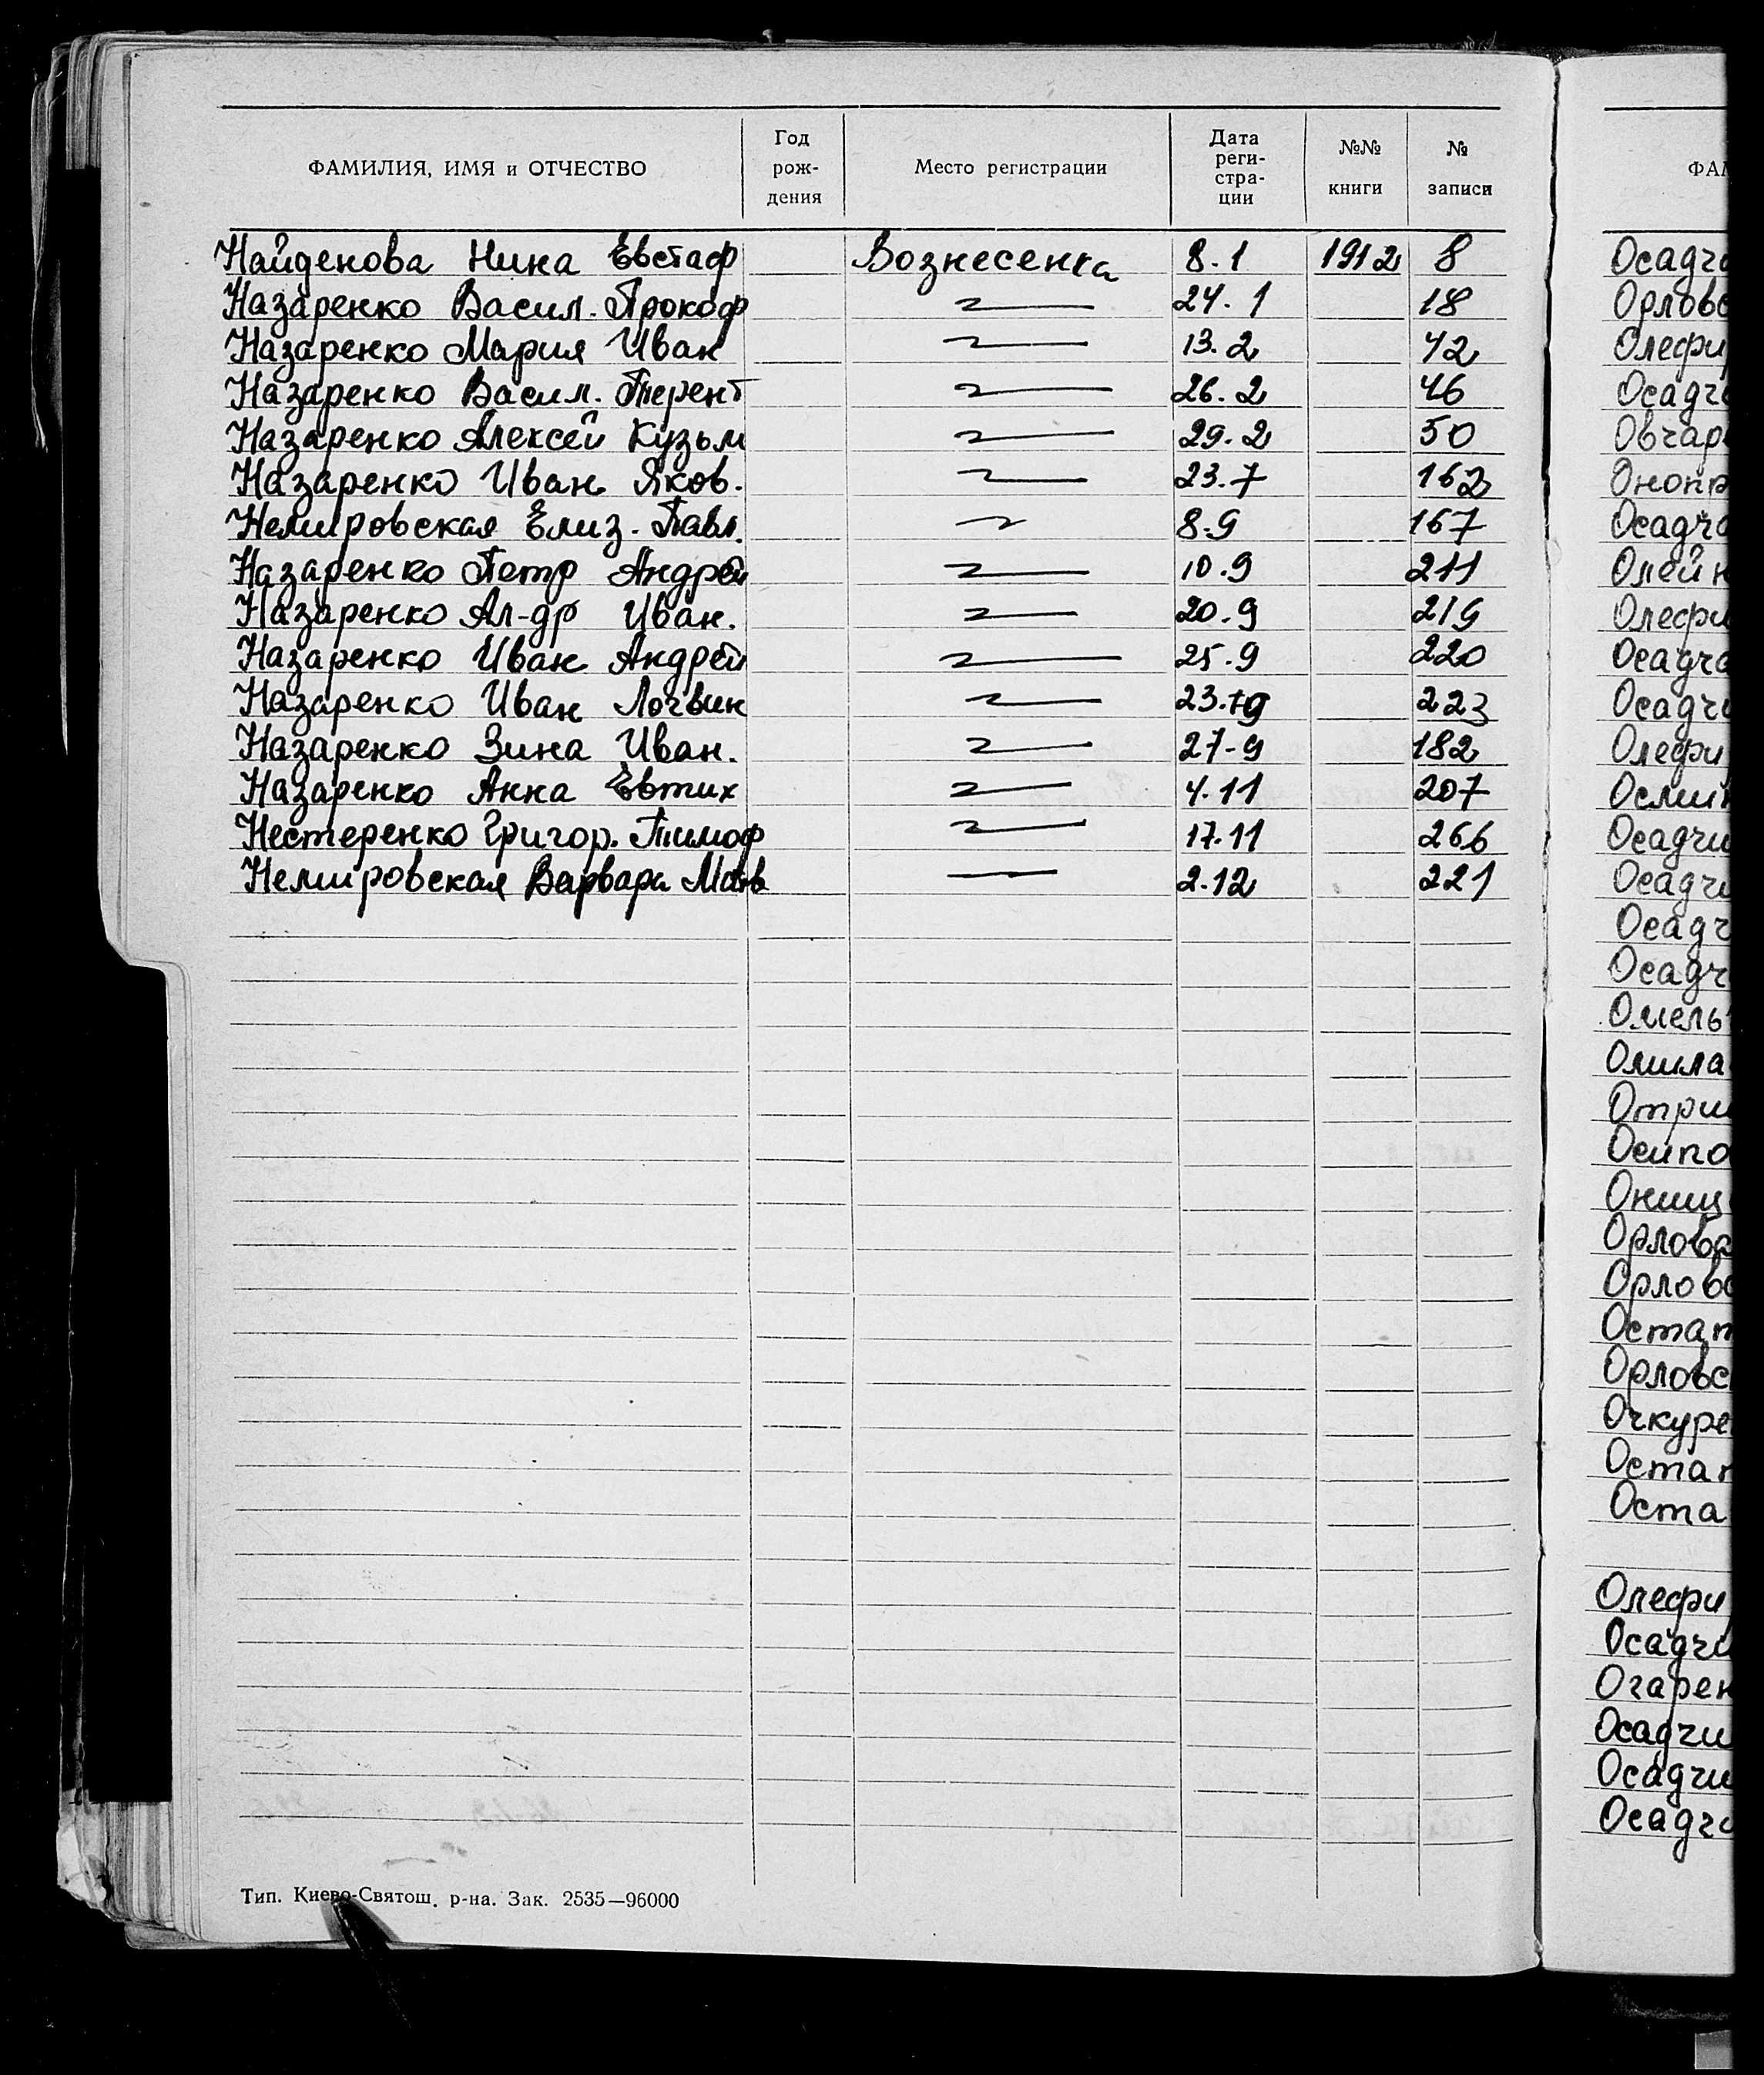 ФАМИЛИЯ, ИМЯ и ОТЧЕСТВО Год рож- дения Место регистрации Дата реги- стра- ции №№ книги № записи
Найденова Нина Евстаф Вознесенка 8.1 1912 8
Назаренко Васил. Прокоф 24.1 18
Назаренко Мария Иван 13.2 42
Назаренко Васил. Терент 26.2 46
Назаренко Алексей Кузьм 29.2 50
Назаренко Иван Яков. 23.7 162
Немировская Елиз. Павл. 8.9 167
Назаренко Петр Андрей 10.9 211
Назаренко Ал-др Иван. 20.9 219
Назаренко Иван Андрей 25.9 220
Назаренко Иван Логвин 23.9 223
Назаренко Зина Иван. 27-9 182
Назаренко Анна Евтих 4.11 207
Нестеренко Григор. Тимоф 17.11 266
Немировская Варвара Матв 2.12 221
Тип. Киево-Святош. р-на. Зак. 2535—96000
ФАМ
Осадч
Орлов
Олефи
Осадч
Овчар
Оноп
Осадч
Олейн
Олефи
Осадч
Осадч
Олефи
Осадчи
Осадчи
Осадч
Осадч
Омель
Отри
Осипо
Онищ
Орлов
Орлов
Остап
Орловс
Очкуре
Оста
Олефи
Осадчи
Огарен
Осадчи
Осадчи
Осадч